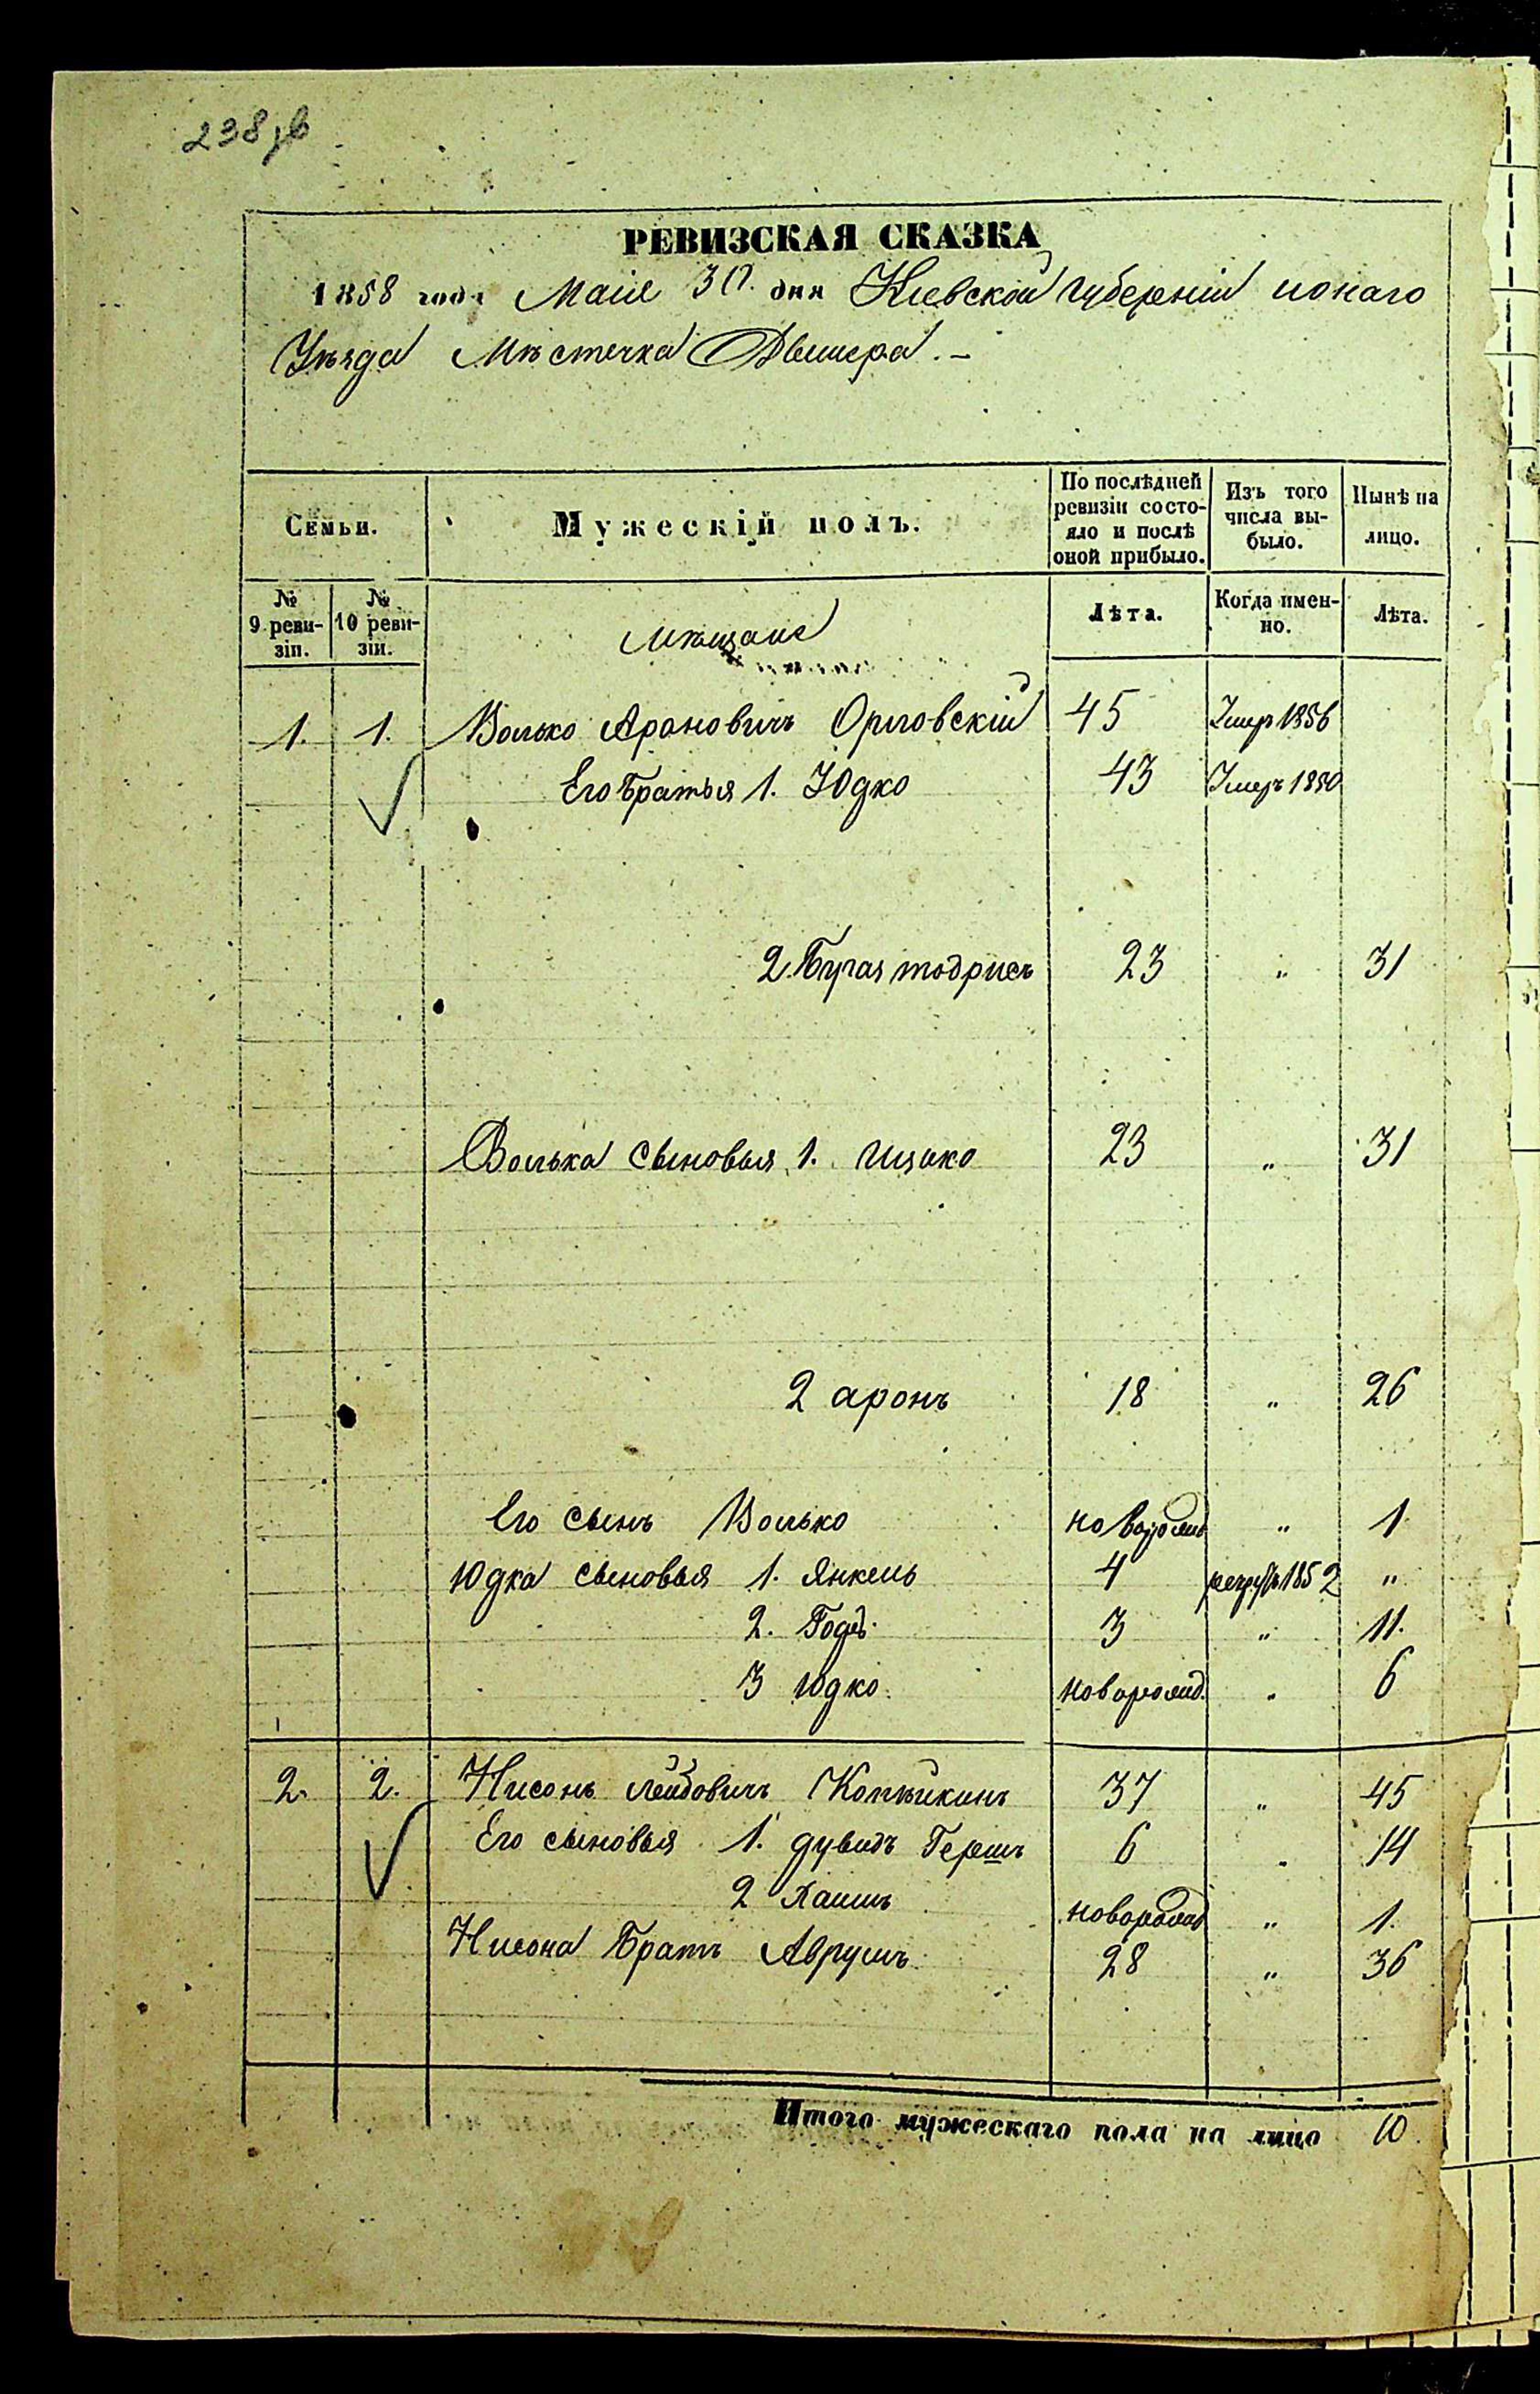 238 зв
РЕВИЗСКАЯ СКАЗКА
1858 года Маія 30. дня Кіевской губерніи тогоже
Уѣзда Мѣстечка Дымера. –
Семьи.
Мужескій полъ.
По послѣдней ревизіи состо-
яло и послѣ оной прибыло.
Изъ того числа вы-
было.
Нынѣ на лицо.
№ 9 реви-
зіи.
№ 10 реви-
зіи.
Лѣта.
Когда имен-
но.
Лѣта.
мѣщане
1. 1. Волько Ароновичъ Орловскій 45 Умеръ 1856
Его Братья 1. Юдко 43 Умеръ 1850
2. тодрисъ 23 " 31
Волька сыновья 1. Ицько 23 " 31
2 аронъ 18 " 26
Его сынъ Волько новорожд " 1
Юдка сыновья 1. Янкель 4 1852 "
2. 3 " 11.
3 Юдко новорожд. " 6
2. 2. Нисонъ Лейбовичъ Копѣйкинъ 37 " 45
Его сыновья 1. дувидъ Гершъ 6 " 14
2 Хаимъ новорожд " 1.
Нисона Братъ Аврумъ 28 " 36
Итого мужескаго пола на лицо 10.